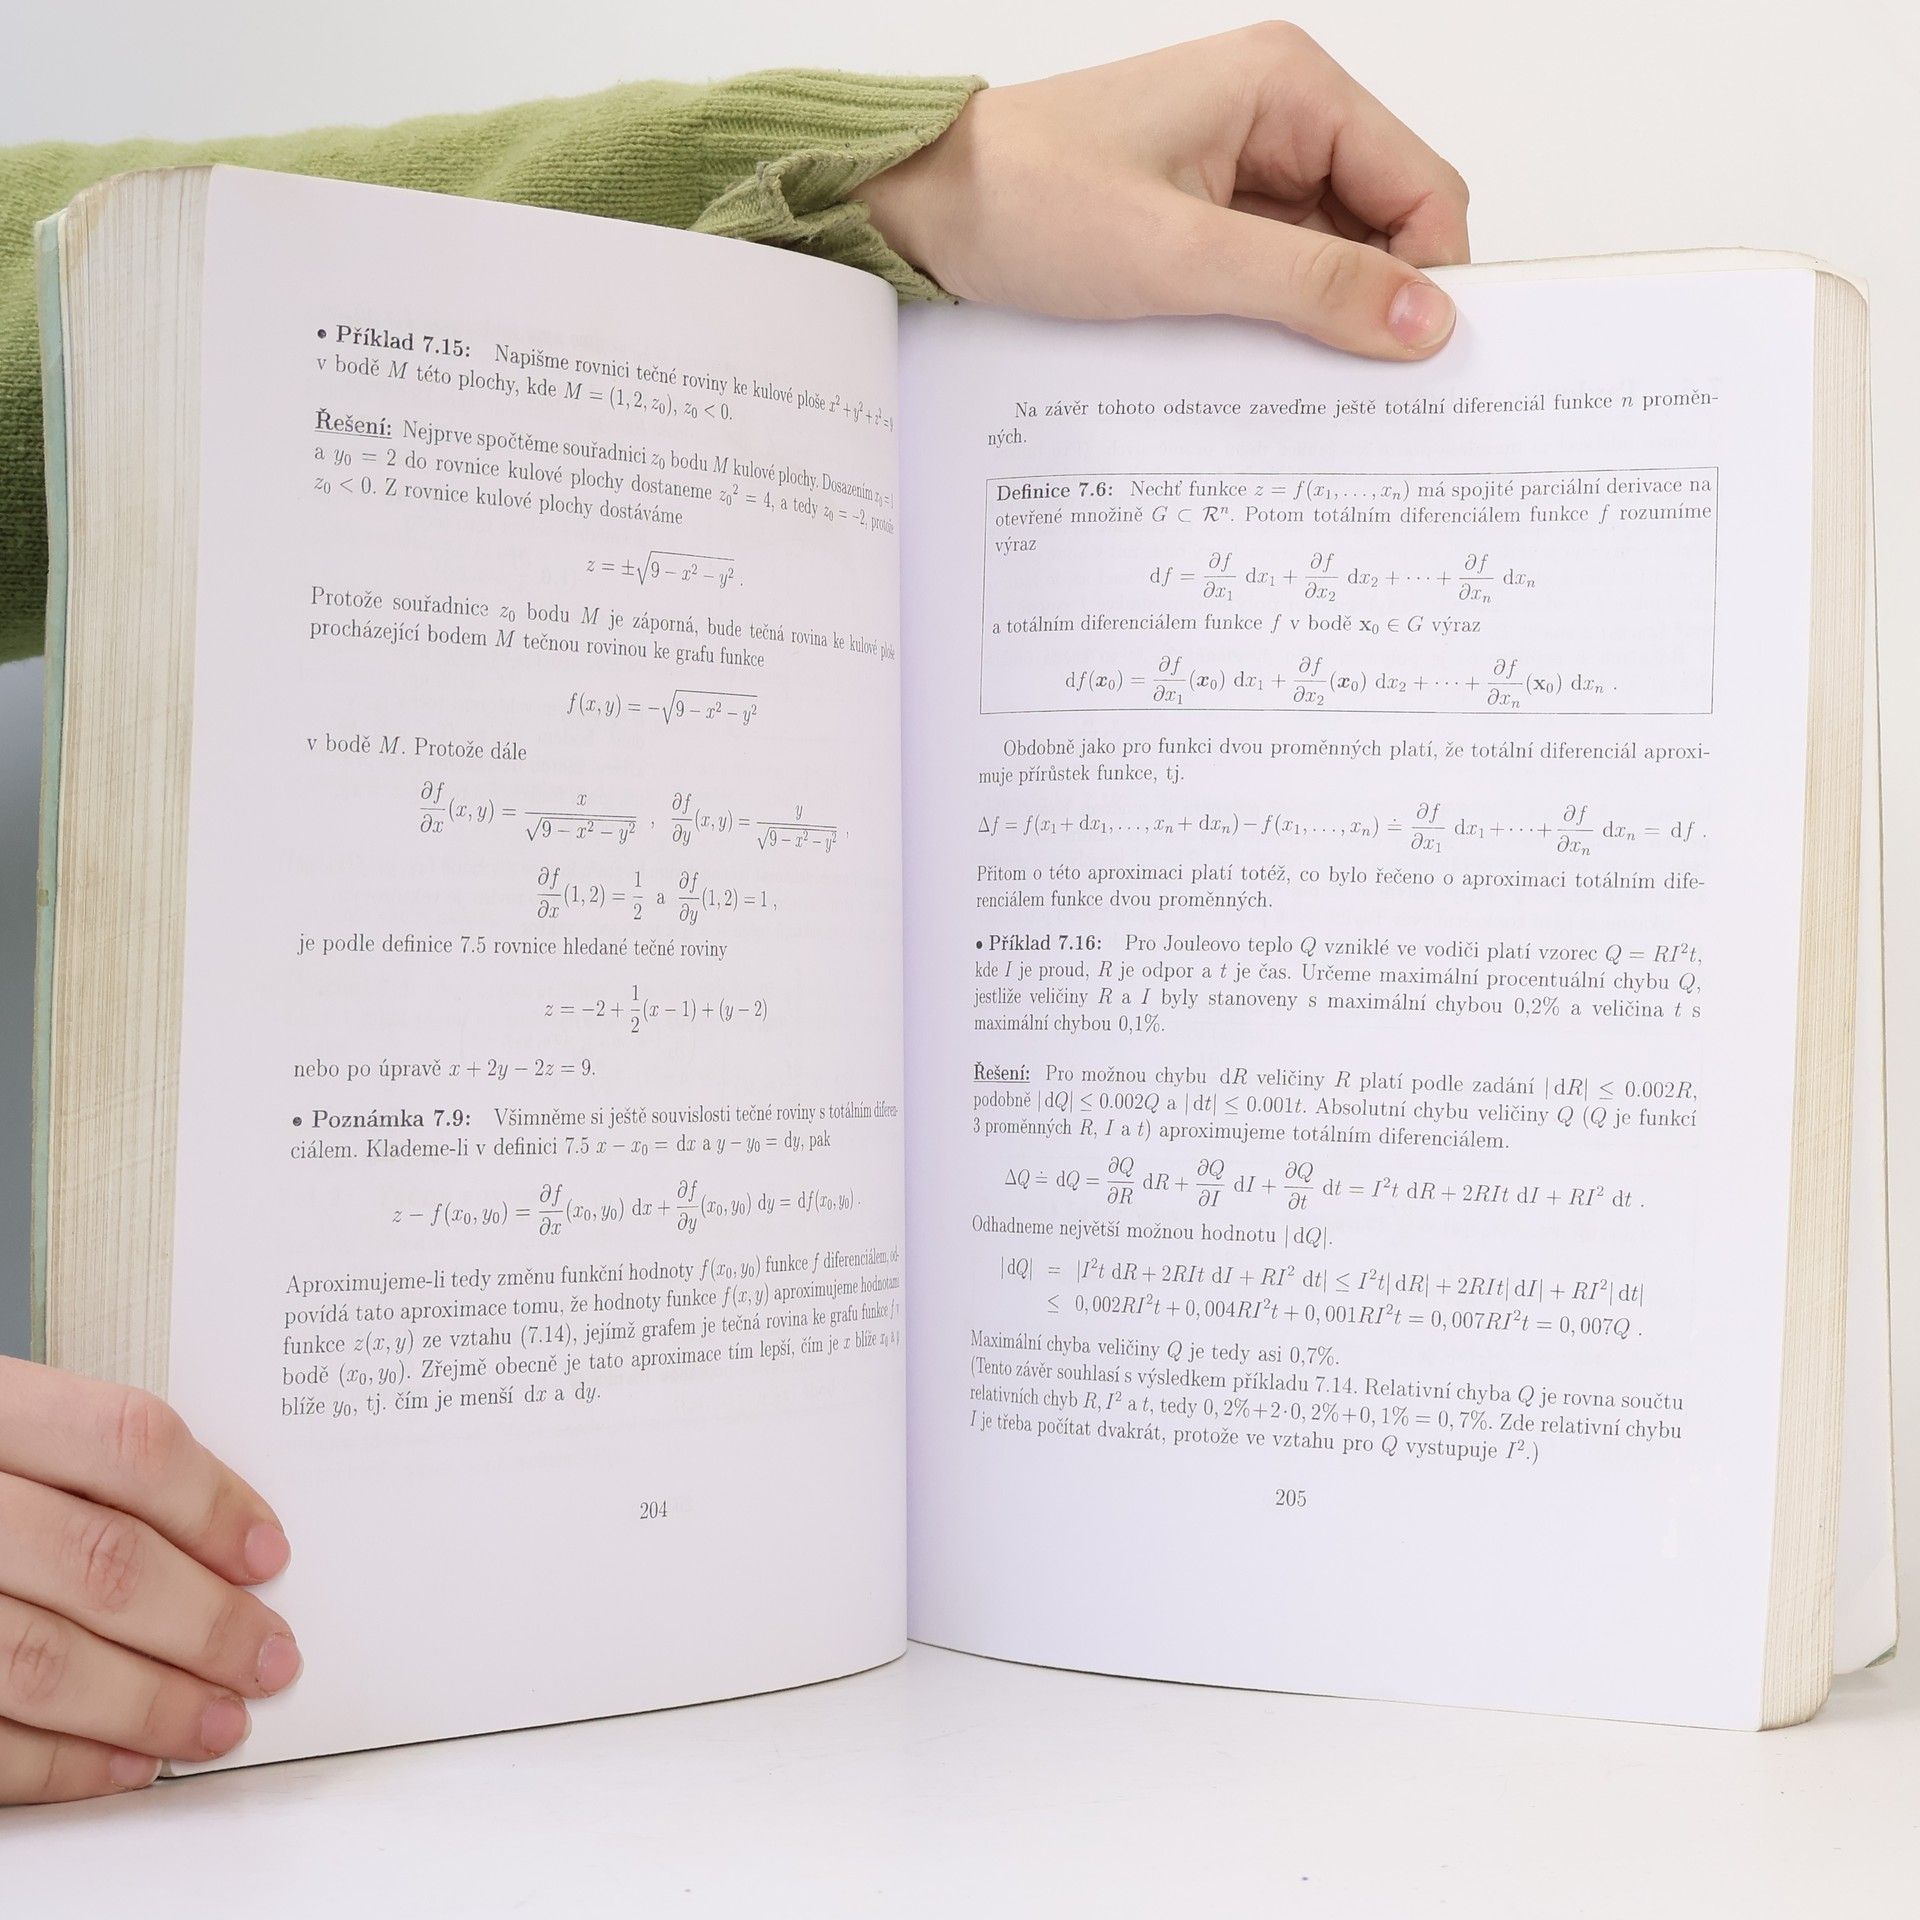 • Příklad 7.15: Napišme rovnici tečné roviny ke kulové ploše x² + y² + z² = 9
v bodě M této plochy, kde M = (1, 2, z₀), z₀ < 0.
Řešení: Nejprve spočtěme souřadnici z₀ bodu M kulové plochy. Dosazením x₀ = 1
a y₀ = 2 do rovnice kulové plochy dostaneme z₀² = 4, a tedy z₀ = −2, protože
z₀ < 0. Z rovnice kulové plochy dostáváme
z = ±√(9 − x² − y²) .
Protože souřadnice z₀ bodu M je záporná, bude tečná rovina ke kulové ploše
procházející bodem M tečnou rovinou ke grafu funkce
f(x, y) = −√(9 − x² − y²)
v bodě M. Protože dále
∂f/∂x (x, y) = x/√(9 − x² − y²) , ∂f/∂y (x, y) = y/√(9 − x² − y²) ,
∂f/∂x (1, 2) = 1/2 a ∂f/∂y (1, 2) = 1 ,
je podle definice 7.5 rovnice hledané tečné roviny
z = −2 + 1/2 (x − 1) + (y − 2)
nebo po úpravě x + 2y − 2z = 9.
• Poznámka 7.9: Všimněme si ještě souvislosti tečné roviny s totálním diferen-
ciálem. Klademe-li v definici 7.5 x − x₀ = dx a y − y₀ = dy, pak
z − f(x₀, y₀) = ∂f/∂x (x₀, y₀) dx + ∂f/∂y (x₀, y₀) dy = df(x₀, y₀) .
Aproximujeme-li tedy změnu funkční hodnoty f(x₀, y₀) funkce f diferenciálem, od-
povídá tato aproximace tomu, že hodnoty funkce f(x, y) aproximujeme hodnotami
funkce z(x, y) ze vztahu (7.14), jejímž grafem je tečná rovina ke grafu funkce f v
bodě (x₀, y₀). Zřejmě obecně je tato aproximace tím lepší, čím je x blíže x₀ a y
blíže y₀, tj. čím je menší dx a dy.
204
Na závěr tohoto odstavce zaveďme ještě totální diferenciál funkce n proměn-
ných.
Definice 7.6: Nechť funkce z = f(x₁, . . . , xₙ) má spojité parciální derivace na
otevřené množině G ⊂ 𝓡ⁿ. Potom totálním diferenciálem funkce f rozumíme
výraz
df = ∂f/∂x₁ dx₁ + ∂f/∂x₂ dx₂ + · · · + ∂f/∂xₙ dxₙ
a totálním diferenciálem funkce f v bodě x₀ ∈ G výraz
df(x₀) = ∂f/∂x₁ (x₀) dx₁ + ∂f/∂x₂ (x₀) dx₂ + · · · + ∂f/∂xₙ (x₀) dxₙ .
Obdobně jako pro funkci dvou proměnných platí, že totální diferenciál aproxi-
muje přírůstek funkce, tj.
Δf = f(x₁ + dx₁, . . . , xₙ + dxₙ) − f(x₁, . . . , xₙ) ≐ ∂f/∂x₁ dx₁ + · · · + ∂f/∂xₙ dxₙ = df .
Přitom o této aproximaci platí totéž, co bylo řečeno o aproximaci totálním dife-
renciálem funkce dvou proměnných.
• Příklad 7.16: Pro Jouleovo teplo Q vzniklé ve vodiči platí vzorec Q = RI²t,
kde I je proud, R je odpor a t je čas. Určeme maximální procentuální chybu Q,
jestliže veličiny R a I byly stanoveny s maximální chybou 0,2% a veličina t s
maximální chybou 0,1%.
Řešení: Pro možnou chybu dR veličiny R platí podle zadání | dR| ≤ 0.002R,
podobně | dQ| ≤ 0.002Q a | dt| ≤ 0.001t. Absolutní chybu veličiny Q (Q je funkcí
3 proměnných R, I a t) aproximujeme totálním diferenciálem.
ΔQ ≐ dQ = ∂Q/∂R dR + ∂Q/∂I dI + ∂Q/∂t dt = I²t dR + 2RIt dI + RI² dt .
Odhadneme největší možnou hodnotu | dQ|.
| dQ| = |I²t dR + 2RIt dI + RI² dt| ≤ I²t| dR| + 2RIt| dI| + RI²| dt|
≤ 0, 002RI²t + 0, 004RI²t + 0, 001RI²t = 0, 007RI²t = 0, 007Q .
Maximální chyba veličiny Q je tedy asi 0,7%.
(Tento závěr souhlasí s výsledkem příkladu 7.14. Relativní chyba Q je rovna součtu
relativních chyb R, I² a t, tedy 0, 2%+2·0, 2%+0, 1% = 0, 7%. Zde relativní chybu
I je třeba počítat dvakrát, protože ve vztahu pro Q vystupuje I².)
205